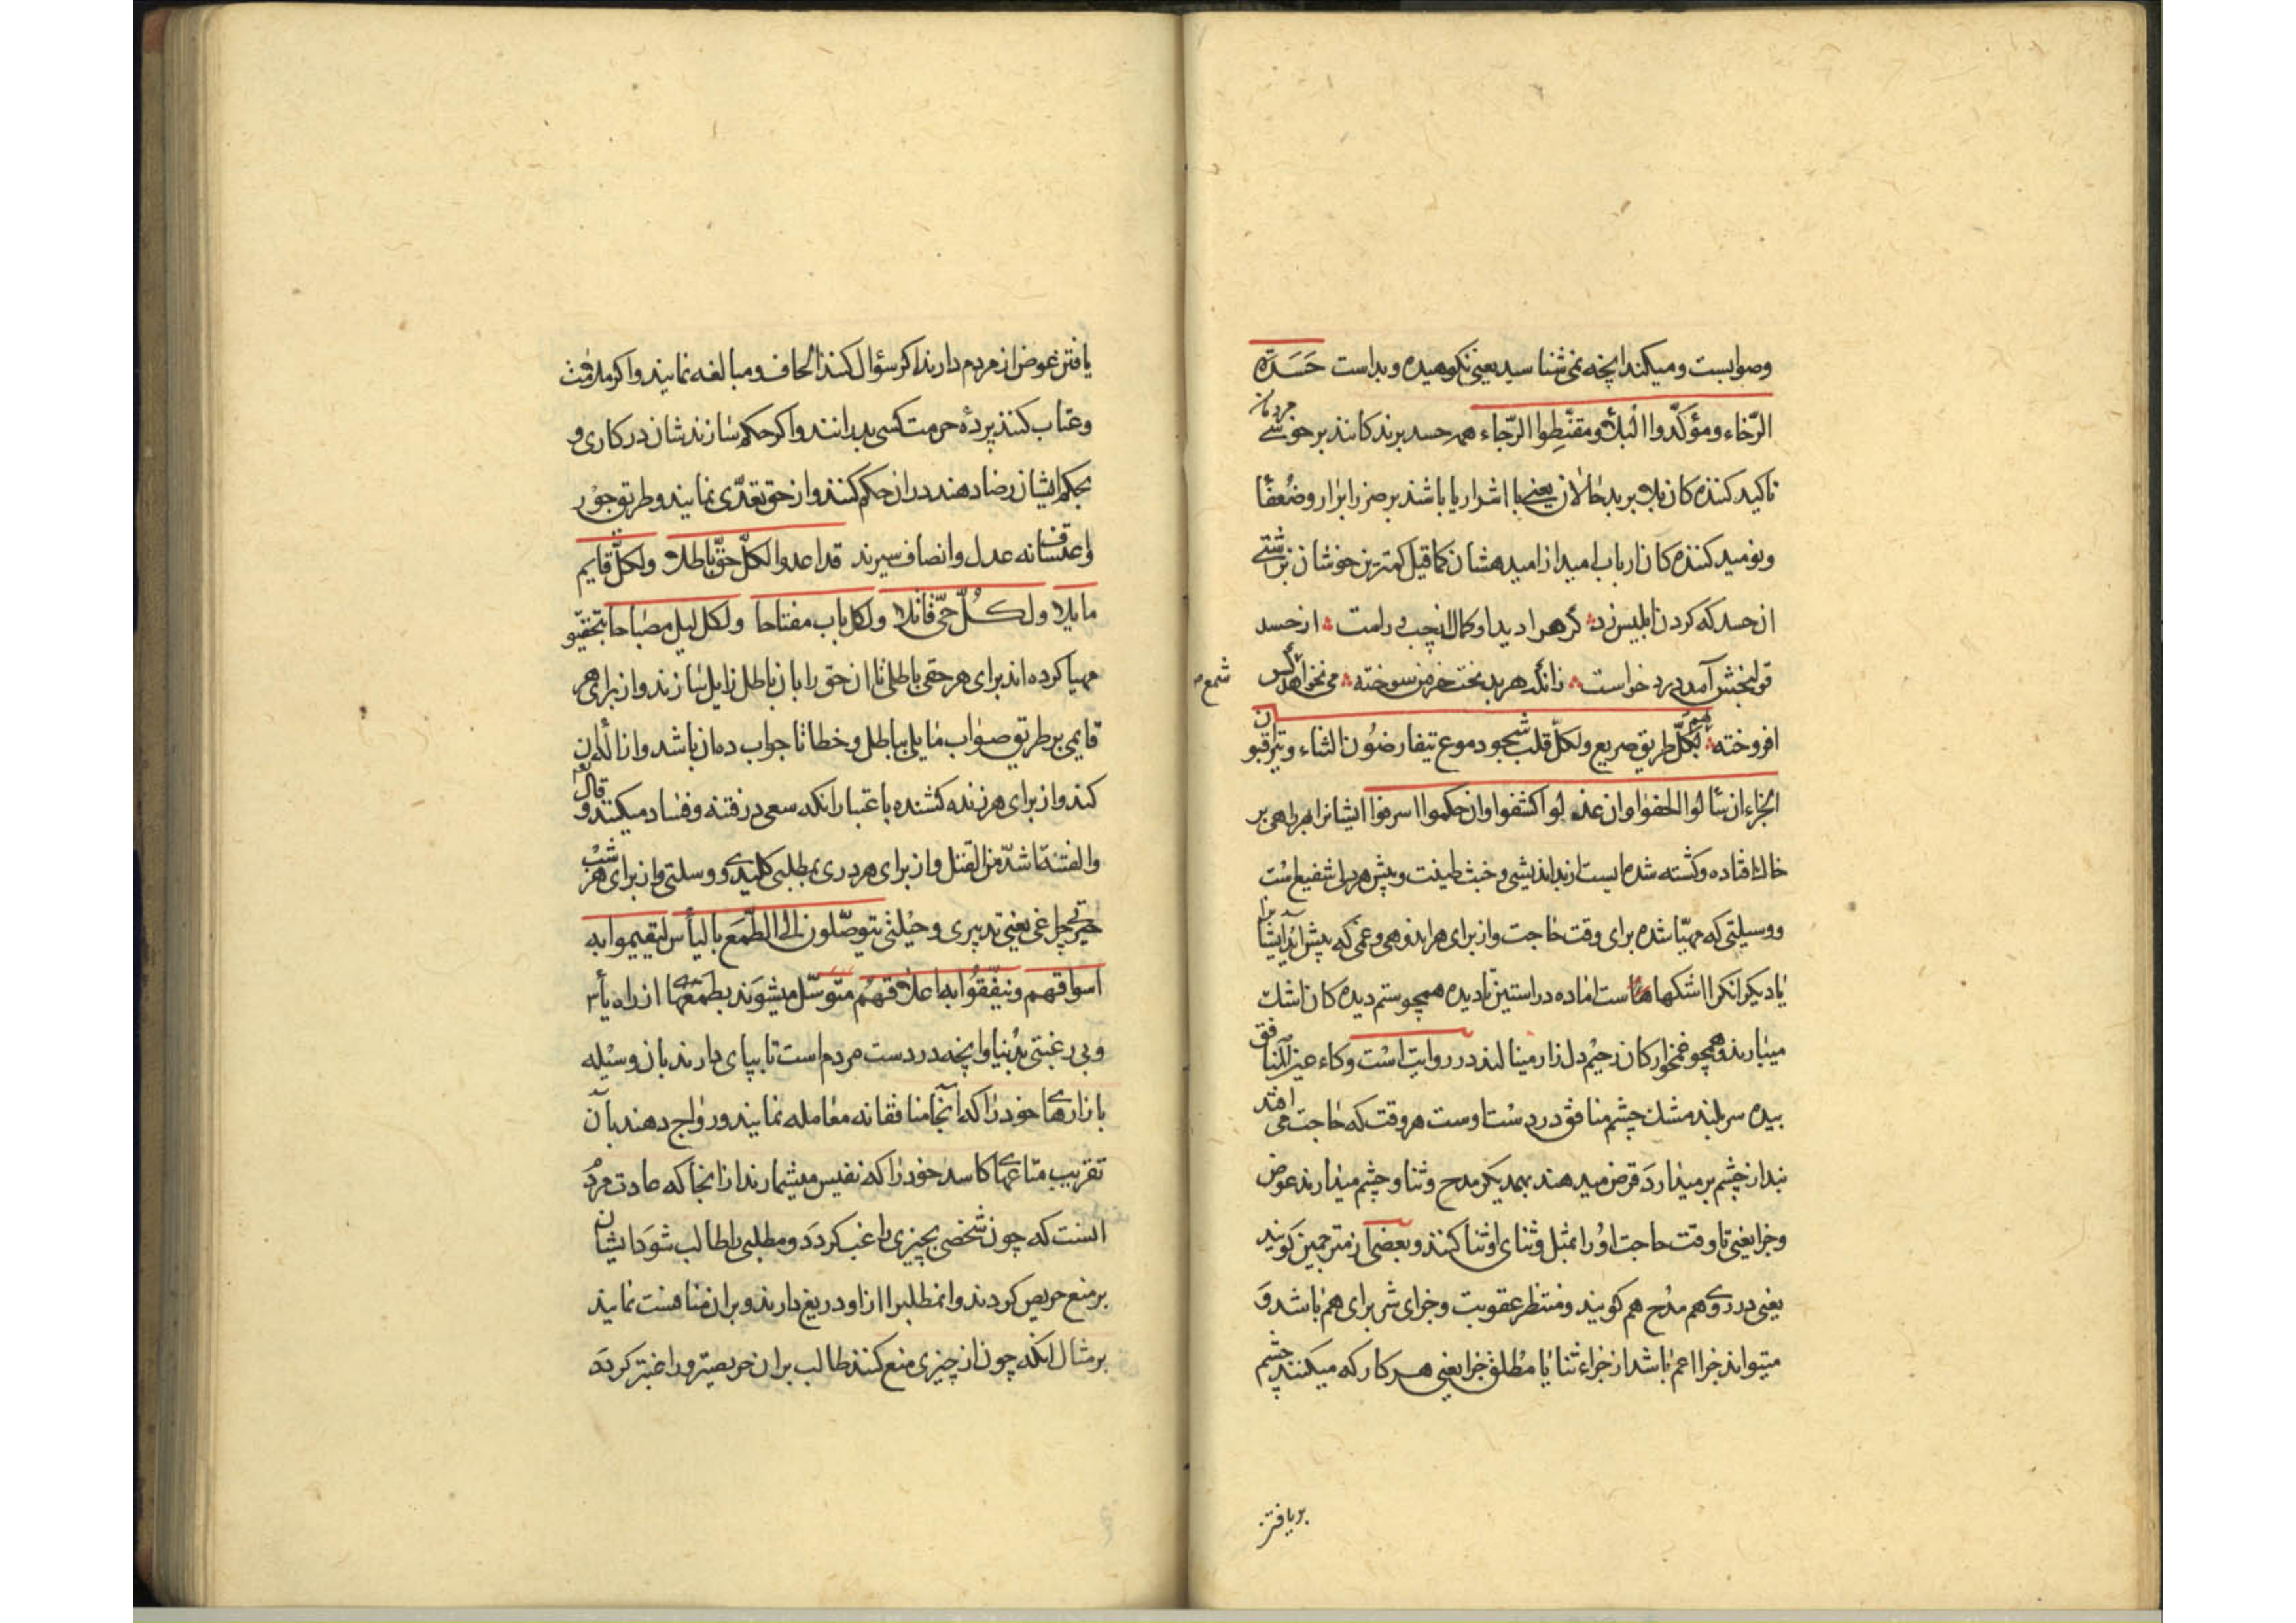 وصوابست و میکند آنچه نمی شناسید یعنی نکوهیده و بد است حَسَدَة
الرّخاء و مؤکّدوا البلاء و مقنّطوا الرّجاء همه حسد برندکانند بر خوشی مردمان
تاکید کننده کان بلا بر بدحالان یعنی با اشرار یا باشند بر ضرر ابرار و ضعفا
و نومید کننده کان ارباب امید از امیدهشان کما قیل کمترین خوشان بزشتی
از حسد که کردن ابلیس زد که هر ادید او کمال از چپ و راست از حسد
قولنجش آمد درد خواست زانکه هر بدبخت خرمن سوخته می نخواهد شمع کس
افروخته لهم بکلّ طریق صریع و لکلّ قلب شجو دموع یتقارضون الثناء و یتراقبون
الجزاء ان سألوا الحفوا و ان عذلوا کشفوا و ان حکموا اسرفوا ایشانرا بهر راهی بر
خاک افتاده و کشته شده ایست از بد اندیشی و خبث طینت و پیش هر دلی شفیع است
و وسیلتی که مهیّا شده برای وقت حاجت و از برای هر اندوهی و غمی که پیش آید ایشانرا
یا دیکرانکرا اشکها است اماده در استین نادیده همچو ستم دیده کان اشک
میبارند و همچو غمخوارکان زحیم دل زار مینالند در روایت است وکاء عین المنافق
بیده سر بند مشک چشم منافق در دست اوست هر وقت که حاجت می افتد
بند از چشم بر میدارد قرض میدهند بهمدیکر مدح و ثنا و چشم میدارند عوض
و جزا یعنی تا وقت حاجت او را بمثل و ثنای او ثنا کنند و بعضی از مترجمین کویند
یعنی در روی هم مدح هم کویند و منتظر عقوبت و جزای شر برای هم باشد و
میتواند جزا اعم باشد از جزاء ثنا یا مطلق جزا یعنی هر کار که میکنند چشم
بر یافتن
یافتن عوض از مردم دارند اکر سؤال کنند الحاف و مبالغه نمایند و اکر ملامت
و عتاب کنند پردۀ حرمت کسی بدرانند و اکر حکم سازندشان در کاری و
بحکم ایشان رضا دهند در ان حکم کنند و از حق تعدّی نمایند و طریق جور
و اعتساف نه عدل و انصاف سپرند قد اعدوا لکلّ حقّ باطلا و لکلّ قایم
مایلا و لکلّ حیّ قاتلا و لکل باب مفتاحا و لکل لیل مصباحا بتحقیق
مهیا کرده اند برای هر حقی باطلی تا ان حق را بان باطل زایل سازند و از برای هر
قایمی بر طریق صواب مایلی بباطل و خطا تا جواب ده ان باشد و ازاله ان
کند و از برای هر زنده کشنده باعتبار انکه سعی در فتنه و فساد میکنند و قال تعه
و الفتنة اشدّ من القتل و از برای هر دری بمطلبی کلیدی و وسیلتی و از برای هر شب
حیرتی چراغی یعنی تدبیری و حیلتی یتوصّلون الی الطّمع بالیأس لیقیموا به
اسواقهم و ینفّقوا به اعلاقهم متوسّل میشوند بطمعهای از راه یأس
و بی رغبتی بدنیا و آنچه در دست مردم است تا بپای دارند بان وسیله
بازارهای خود را که آنجا منافقانه معامله نمایند و رواج دهند بآن
تقریب متاعهای کاسد خود را که نفیس میشمارند از انجا که عادت مردم
انست که چون شخصی بچیزی راغب کردد و مطلبی را طالب شود ایشان
بر منع حریص کردند و انمطلبرا از او دریغ دارند و بران منافست نمایند
بر مثال انکه چون از چیزی منع کنند طالب بران حریصتر و راغبتر کردد